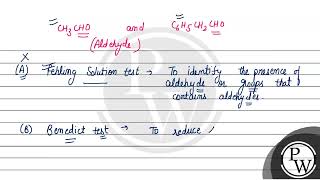 CH₃CHO and C₆H₅CH₂CHO
(Aldehyde)
X
(A) Fehling Solution test → To identify the presence of
aldehyde or groups that
contains aldehydes.
(B) Benedict test → To reduce
PW